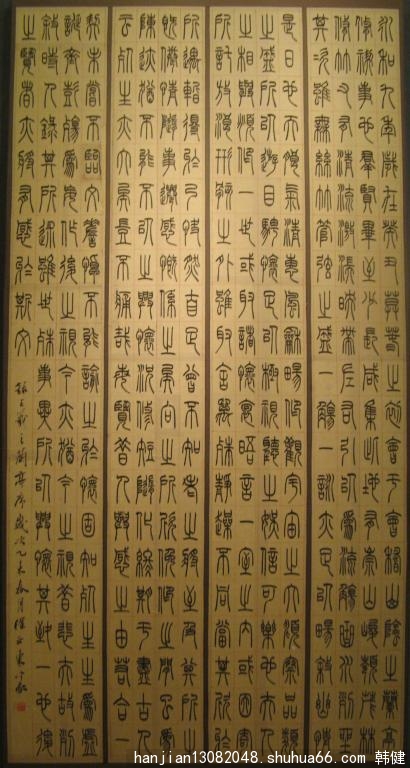 永和九年歲在癸丑暮春之初會于會稽山陰之蘭亭
修禊事也羣賢畢至少長咸集此地有崇山峻領茂林
修竹又有清流激湍映帶左右引以爲流觴曲水列坐
其次雖無絲竹管弦之盛一觴一詠亦足以暢敘幽情
是日也天朗氣清惠風和暢仰觀宇宙之大俯察品類
之盛所以遊目騁懷足以極視聽之娛信可樂也夫人
之相與俯仰一世或取諸懷抱晤言一室之內或因寄
所託放浪形骸之外雖取舍萬殊靜躁不同當其欣於
所遇暫得於己快然自足曾不知老之將至及其所之
既倦情隨事遷感慨係之矣向之所欣俯仰之閒已爲
陳迹猶不能不以之興懷況修短隨化終期于盡古人
云死生亦大矣豈不痛哉每覽昔人興感之由若合一
契未嘗不臨文嗟悼不能喻之於懷固知一死生爲虛
誕齊彭殤爲妄作後之視今亦猶今之視昔悲夫故列
敘時人錄其所述雖世殊事異所以興懷其致一也後
之覽者亦將有感於斯文
王羲之蘭亭序歲次乙未春月
hanjian13082048.shuhua66.com 韩健